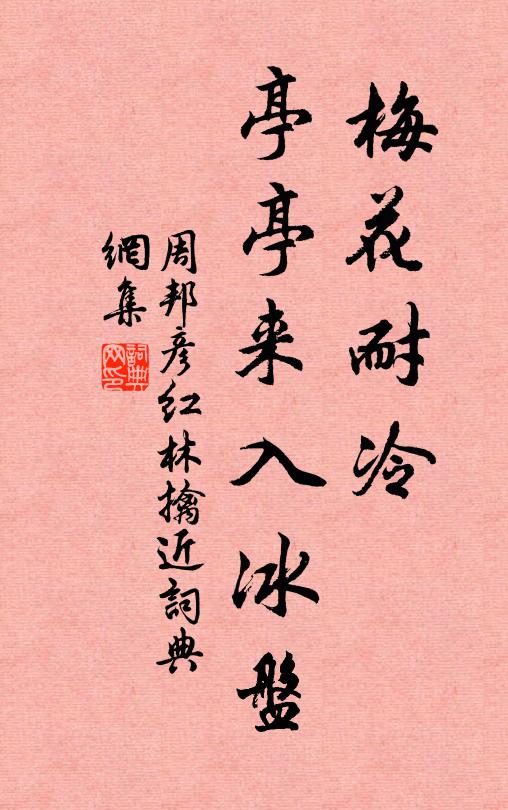 梅花耐冷
亭亭来入冰盤
周邦彦红林擒近詞典
網集
詞典网印